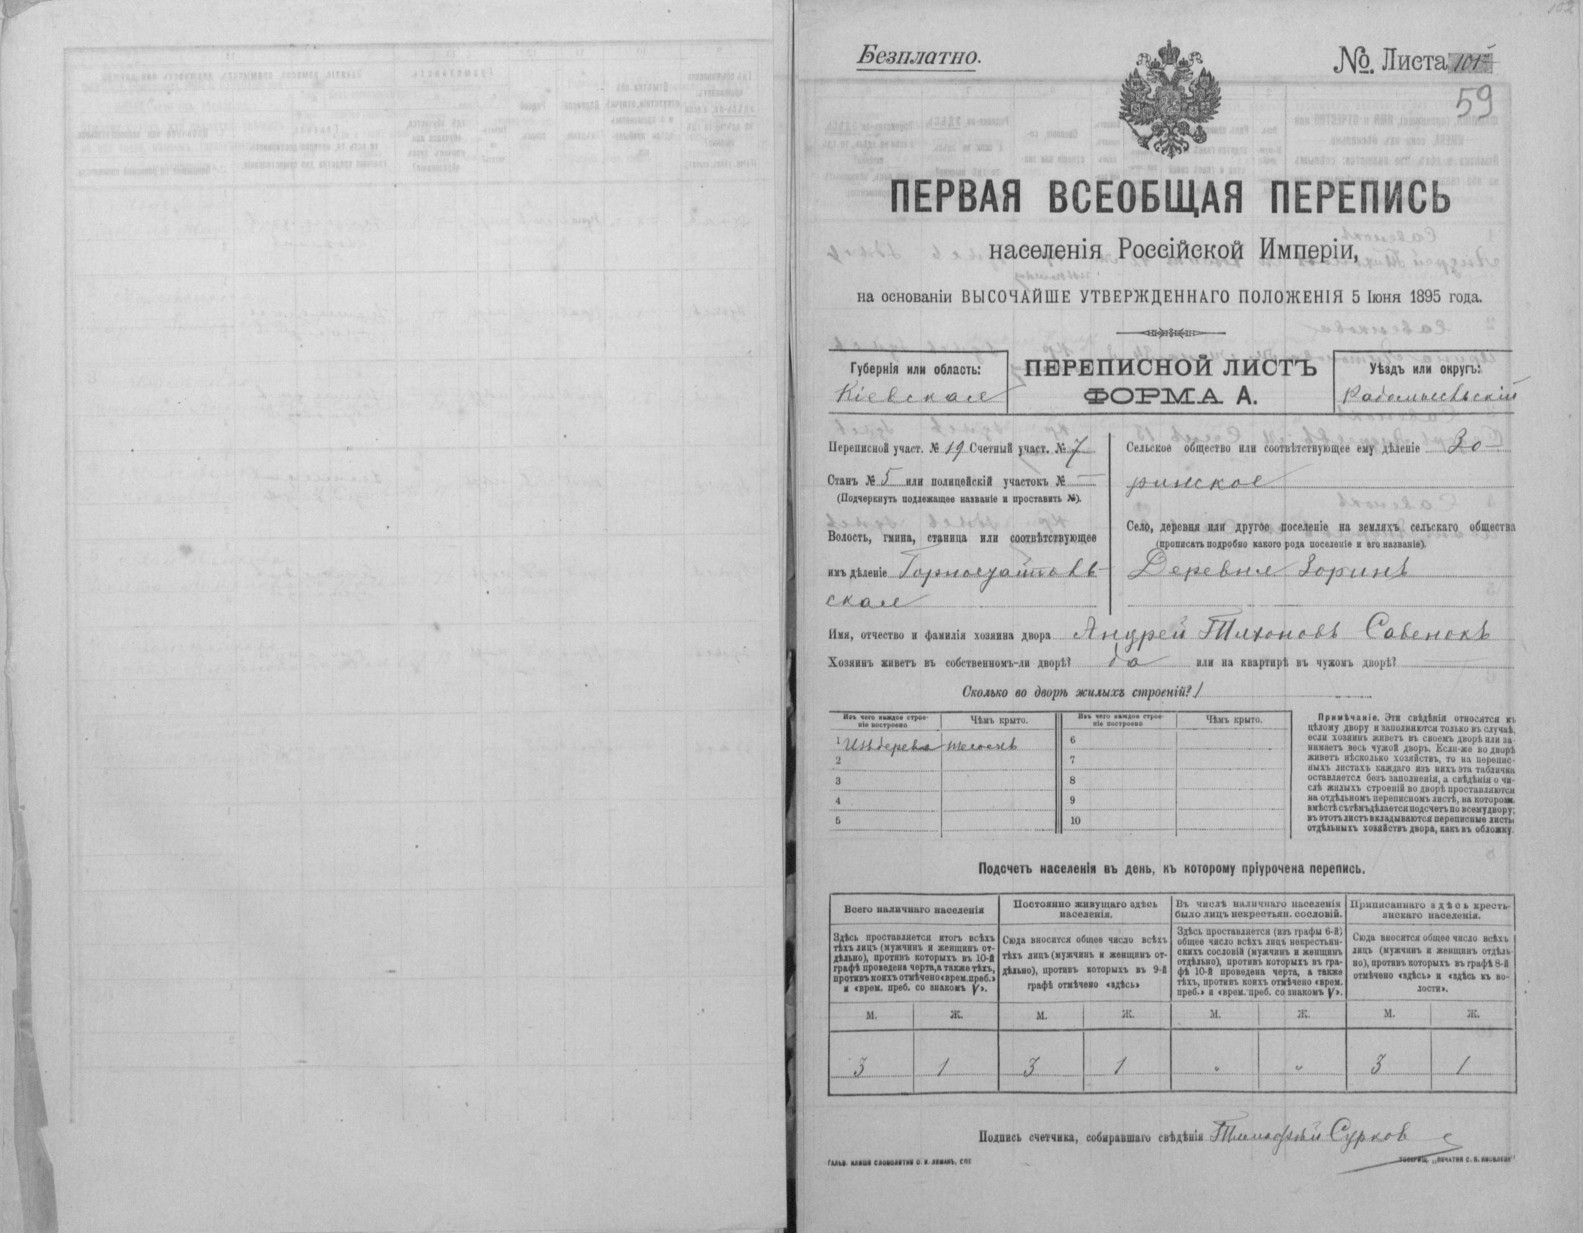 Безплатно.
№. Листа 101
59
ПЕРВАЯ ВСЕОБЩАЯ ПЕРЕПИСЬ
населенія Россійской Имперіи,
на основаніи ВЫСОЧАЙШЕ УТВЕРЖДЕННАГО ПОЛОЖЕНІЯ 5 Іюня 1895 года.
Губернія или область:
Кіевская
ПЕРЕПИСНОЙ ЛИСТЪ
ФОРМА А.
Уѣздъ или округъ:
Радомысльскій
Переписной участ. № 19 Счетный участ. № 7
Станъ № 5 или полицейскій участокъ № —
(Подчеркнуть подлежащее названіе и проставить №).
Волость, гмина, станица или соотвѣтствующее
имъ дѣленіе Горностайпѡль-
ская
Сельское общество или соотвѣтствующее ему дѣленіе Зо-
ринское
Село, деревня или другое поселеніе на земляхъ сельскаго общества
(прописать подробно какого рода поселеніе и его названіе).
Деревня Зоринъ
Имя, отчество и фамилія хозяина двора Андрей Тихоновъ Савенокъ
Хозяинъ живетъ въ собственномъ-ли дворѣ? да или на квартирѣ въ чужомъ дворѣ?
Сколько во дворѣ жилыхъ строеній? 1
Изъ чего каждое строе-
ніе построено
Чѣмъ крыто.
Изъ чего каждое строе-
ніе построено
Чѣмъ крыто.
1 Изъ дерева
6
2
7
3
8
4
9
5
10
Примѣчаніе. Эти свѣдѣнія относятся къ
цѣлому двору и заполняются только въ случаѣ,
если хозяинъ живетъ въ своемъ дворѣ или за-
нимаетъ весь чужой дворъ. Если-же во дворѣ
живетъ нѣсколько хозяйствъ, то на перепис-
ныхъ листахъ каждаго изъ нихъ эта табличка
оставляется безъ заполненія, а свѣдѣнія о чи-
слѣ жилыхъ строеній во дворѣ проставляются
на отдѣльномъ переписномъ листѣ, на которомъ
вмѣстѣ съ тѣмъ дѣлается подсчетъ по всему двору;
въ этотъ листъ вкладываются переписные листы
отдѣльныхъ хозяйствъ двора, какъ въ обложку.
Подсчетъ населенія въ день, къ которому пріурочена перепись.
Всего наличнаго населенія
Постоянно живущаго здѣсь
населенія.
Въ числѣ наличнаго населенія
было лицъ некрестьян. сословій.
Приписаннаго здѣсь кресть-
янскаго населенія.
Здѣсь проставляется итогъ всѣхъ
тѣхъ лицъ (мужчинъ и женщинъ от-
дѣльно), противъ которыхъ въ 10-й
графѣ проведена черта, а также тѣхъ,
противъ коихъ отмѣчено «врем. преб.»
и «врем. преб. со знакомъ V».
Сюда вносится общее число всѣхъ
тѣхъ лицъ (мужчинъ и женщинъ от-
дѣльно), противъ которыхъ въ 9-й
графѣ отмѣчено «здѣсь»
Здѣсь проставляется (изъ графы 6-й)
общее число всѣхъ лицъ некрестьян-
скихъ сословій (мужчинъ и женщинъ
отдѣльно), противъ которыхъ въ гра-
фѣ 10-й проведена черта, а также
тѣхъ, противъ коихъ отмѣчено «врем.
преб.» и «врем. преб. со знакомъ V».
Сюда вносится общее число всѣхъ
лицъ (мужчинъ и женщинъ отдѣль-
но), противъ которыхъ въ графѣ 8-й
отмѣчено «здѣсь» и «здѣсь къ во-
лости».
М. Ж. М. Ж. М. Ж. М. Ж.
3 1 3 1 „ „ 3 1
Подпись счетчика, собиравшаго свѣдѣнія Тимофѣй Сурков
ГАЛЬВ. КЛИШЕ СЛОВОЛИТНИ О. И. ЛЕМАНЪ, СПБ
ТОВАРИЩ. „ПЕЧАТНЯ С. П. ЯКОВЛЕВА“